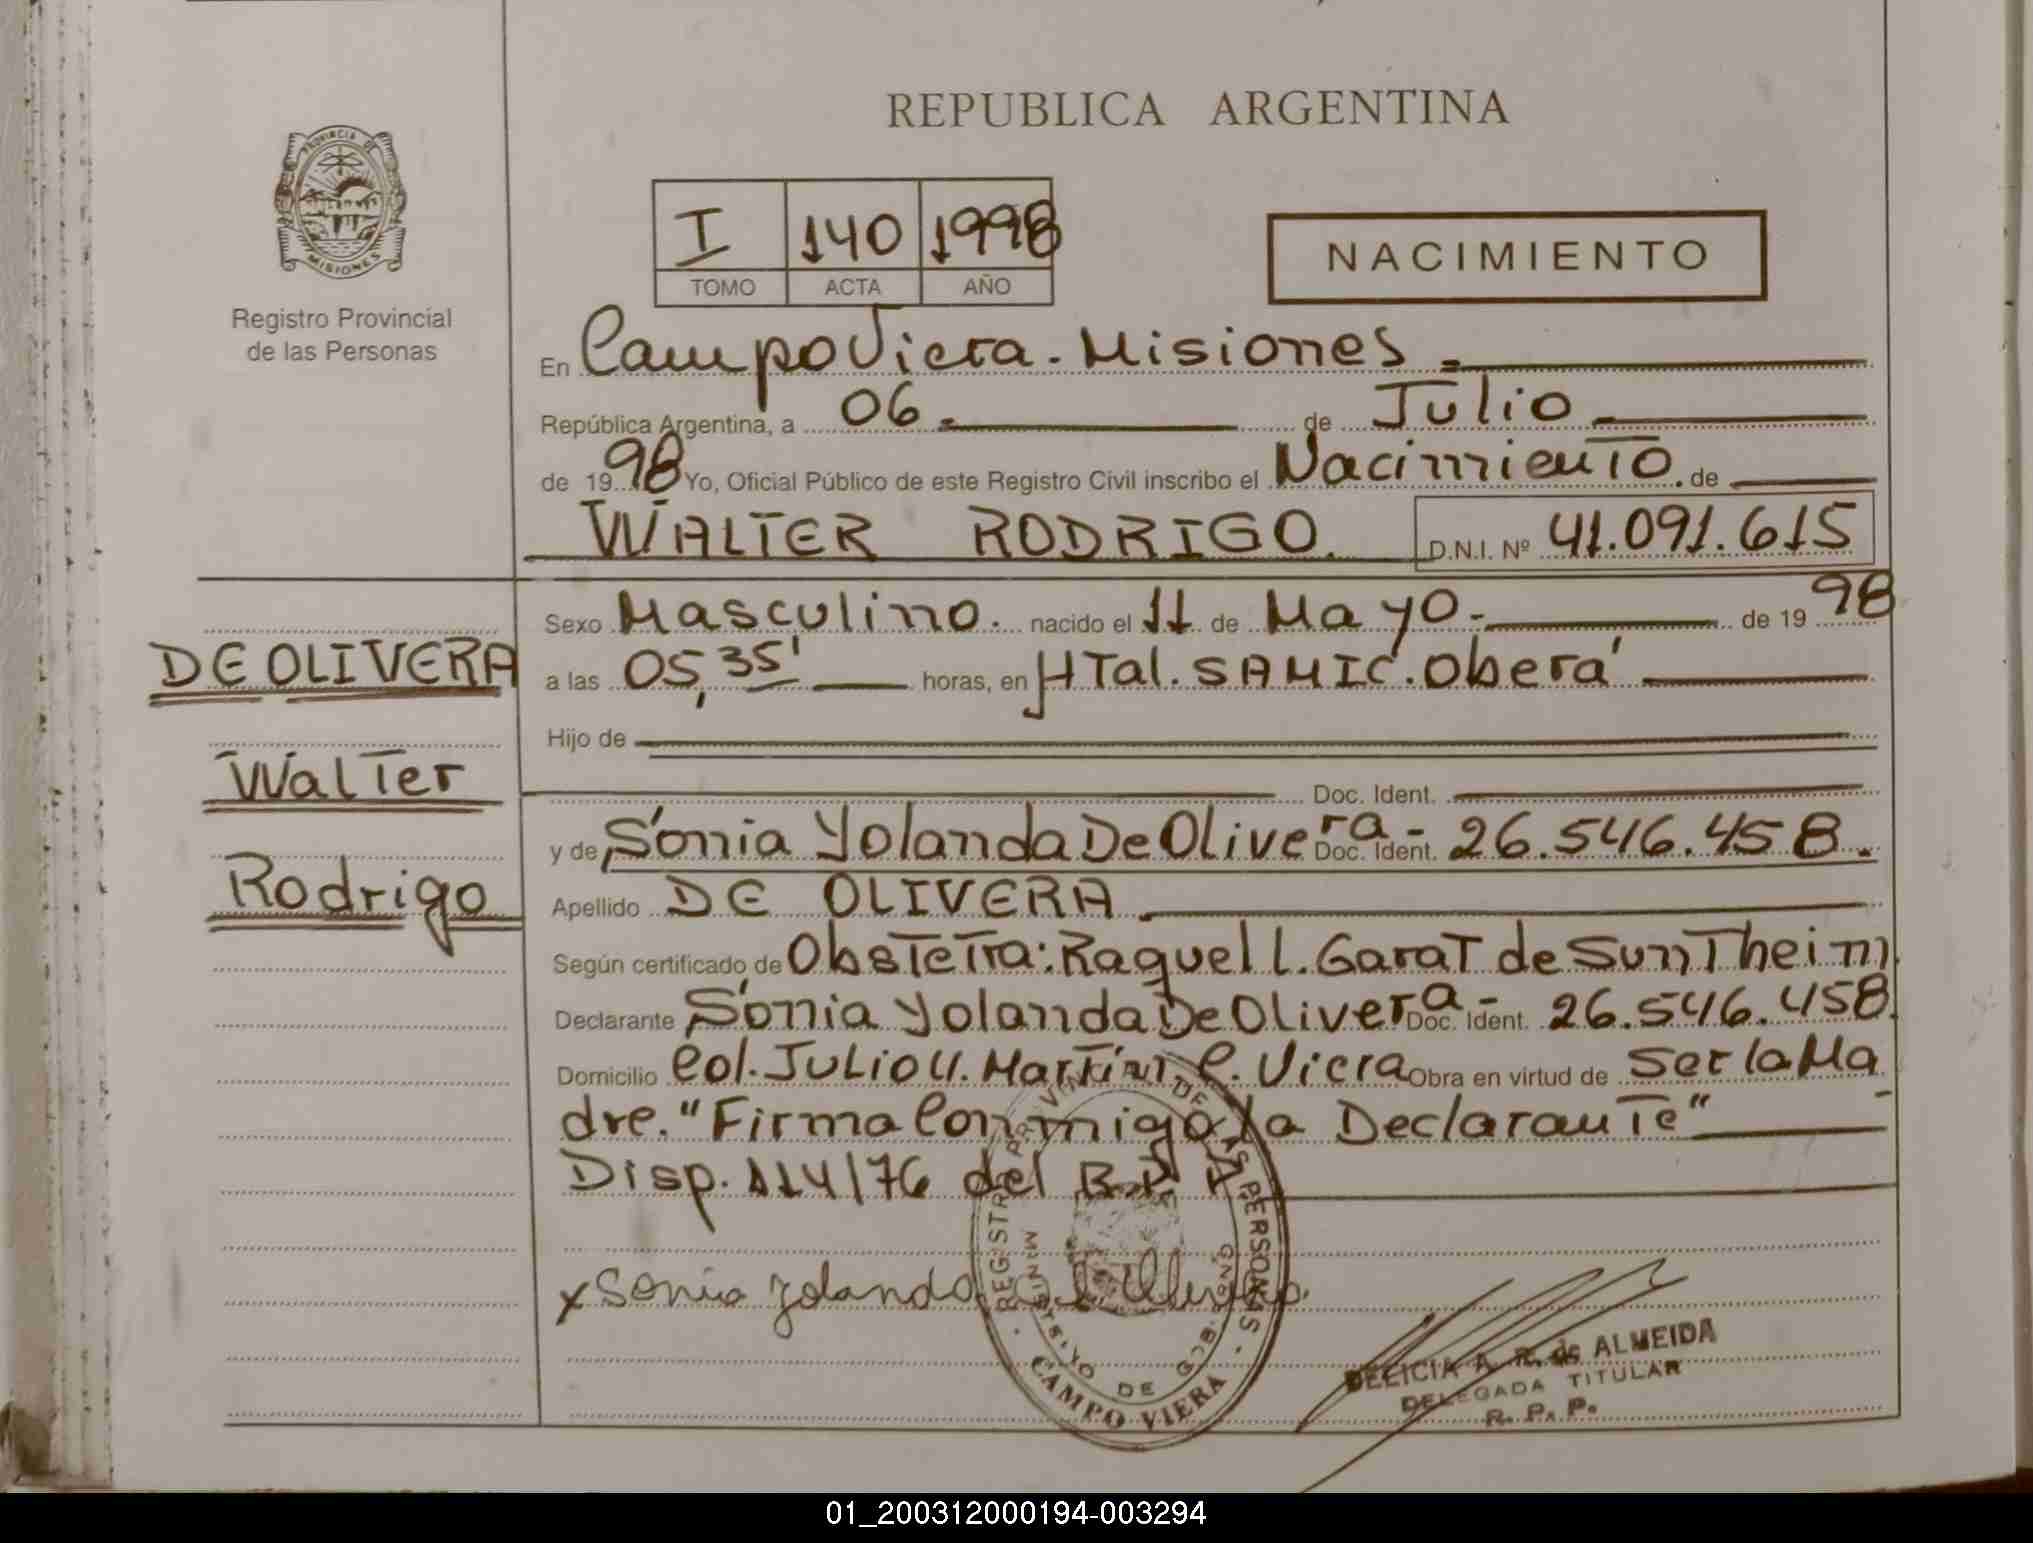 REPUBLICA ARGENTINA
PROVINCIA DE
MISIONES
Registro Provincial
de las Personas
I 140 1998
TOMO ACTA AÑO
NACIMIENTO
En Campo Viera - Misiones
República Argentina, a 06 de Julio
de 1998 Yo, Oficial Público de este Registro Civil inscribo el Nacimiento de
WALTER RODRIGO D.N.I. Nº 41.091.615
DE OLIVERA
Walter
Rodrigo
Sexo Masculino. nacido el 11 de Mayo - de 1998
a las 05,35' horas, en HTal. SAMIC. Oberá
Hijo de
Doc. Ident.
y de Sónia Yolanda De Olivera - Doc. Ident. 26.546.458.
Apellido DE OLIVERA
Según certificado de Obstetra: Raquel L. Garat de Suntheim
Declarante Sónia Yolanda De Olivera - Doc. Ident. 26.546.458.
Domicilio Col. Julio U. Martín C. Viera Obra en virtud de Ser la Ma
dre. "Firma Conmigo la Declarante"
Disp. 114/76 del R.P.P.
x Sonia Yolanda
REGISTRO PROVINCIAL DE LAS PERSONAS
MINISTERIO DE GOB.
CAMPO VIERA
DELICIA A. R. de ALMEIDA
DELEGADA TITULAR
R. P. P.
01_200312000194-003294